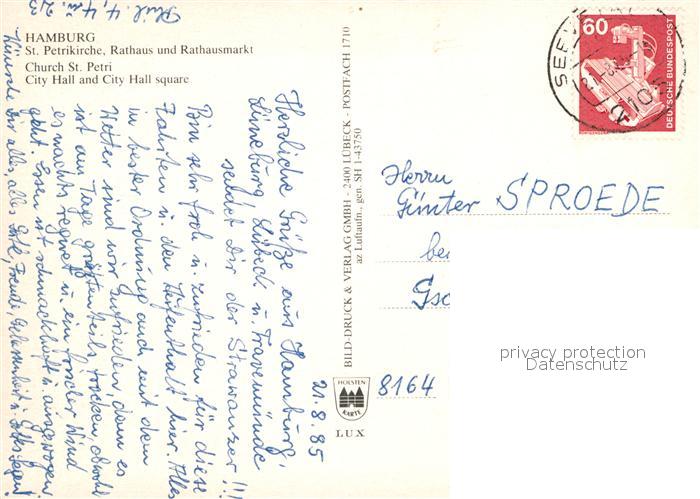 HAMBURG
St. Petrikirche, Rathaus und Rathausmarkt
Church St. Petri
City Hall and City Hall square
Phil. 4, 4 u. 23
21.8.85
Herzliche Grüße aus Hamburg,
Lüneburg, Lübeck u. Travemünde
sendet Dir der Strawanzer!!!
Bin sehr froh u. zufrieden für diese
Fahrten u. den Aufenthalt hier. Alles
in bester Ordnung auch mit dem
Wetter sind wir zufrieden, denn es
ist am Tage größtenteils trocken, obwohl
es nachts regnet u. ein Wind
geht. Essen ist schmackhaft u. ausgewogen
Wünsche Dir alles, alles Gute, Freude, Gelassenheit u. Gottes Segen!
BILD-DRUCK & VERLAG GMBH - 2400 LÜBECK - POSTFACH 1710
az Luftaufn., gen. SH 1-43750
HOLSTEN-
KARTE
LUX
60
DEUTSCHE BUNDESPOST
SEEVETAL
2105
Herrn
Günter SPROEDE
bei
Gsc
8164
privacy protection
Datenschutz